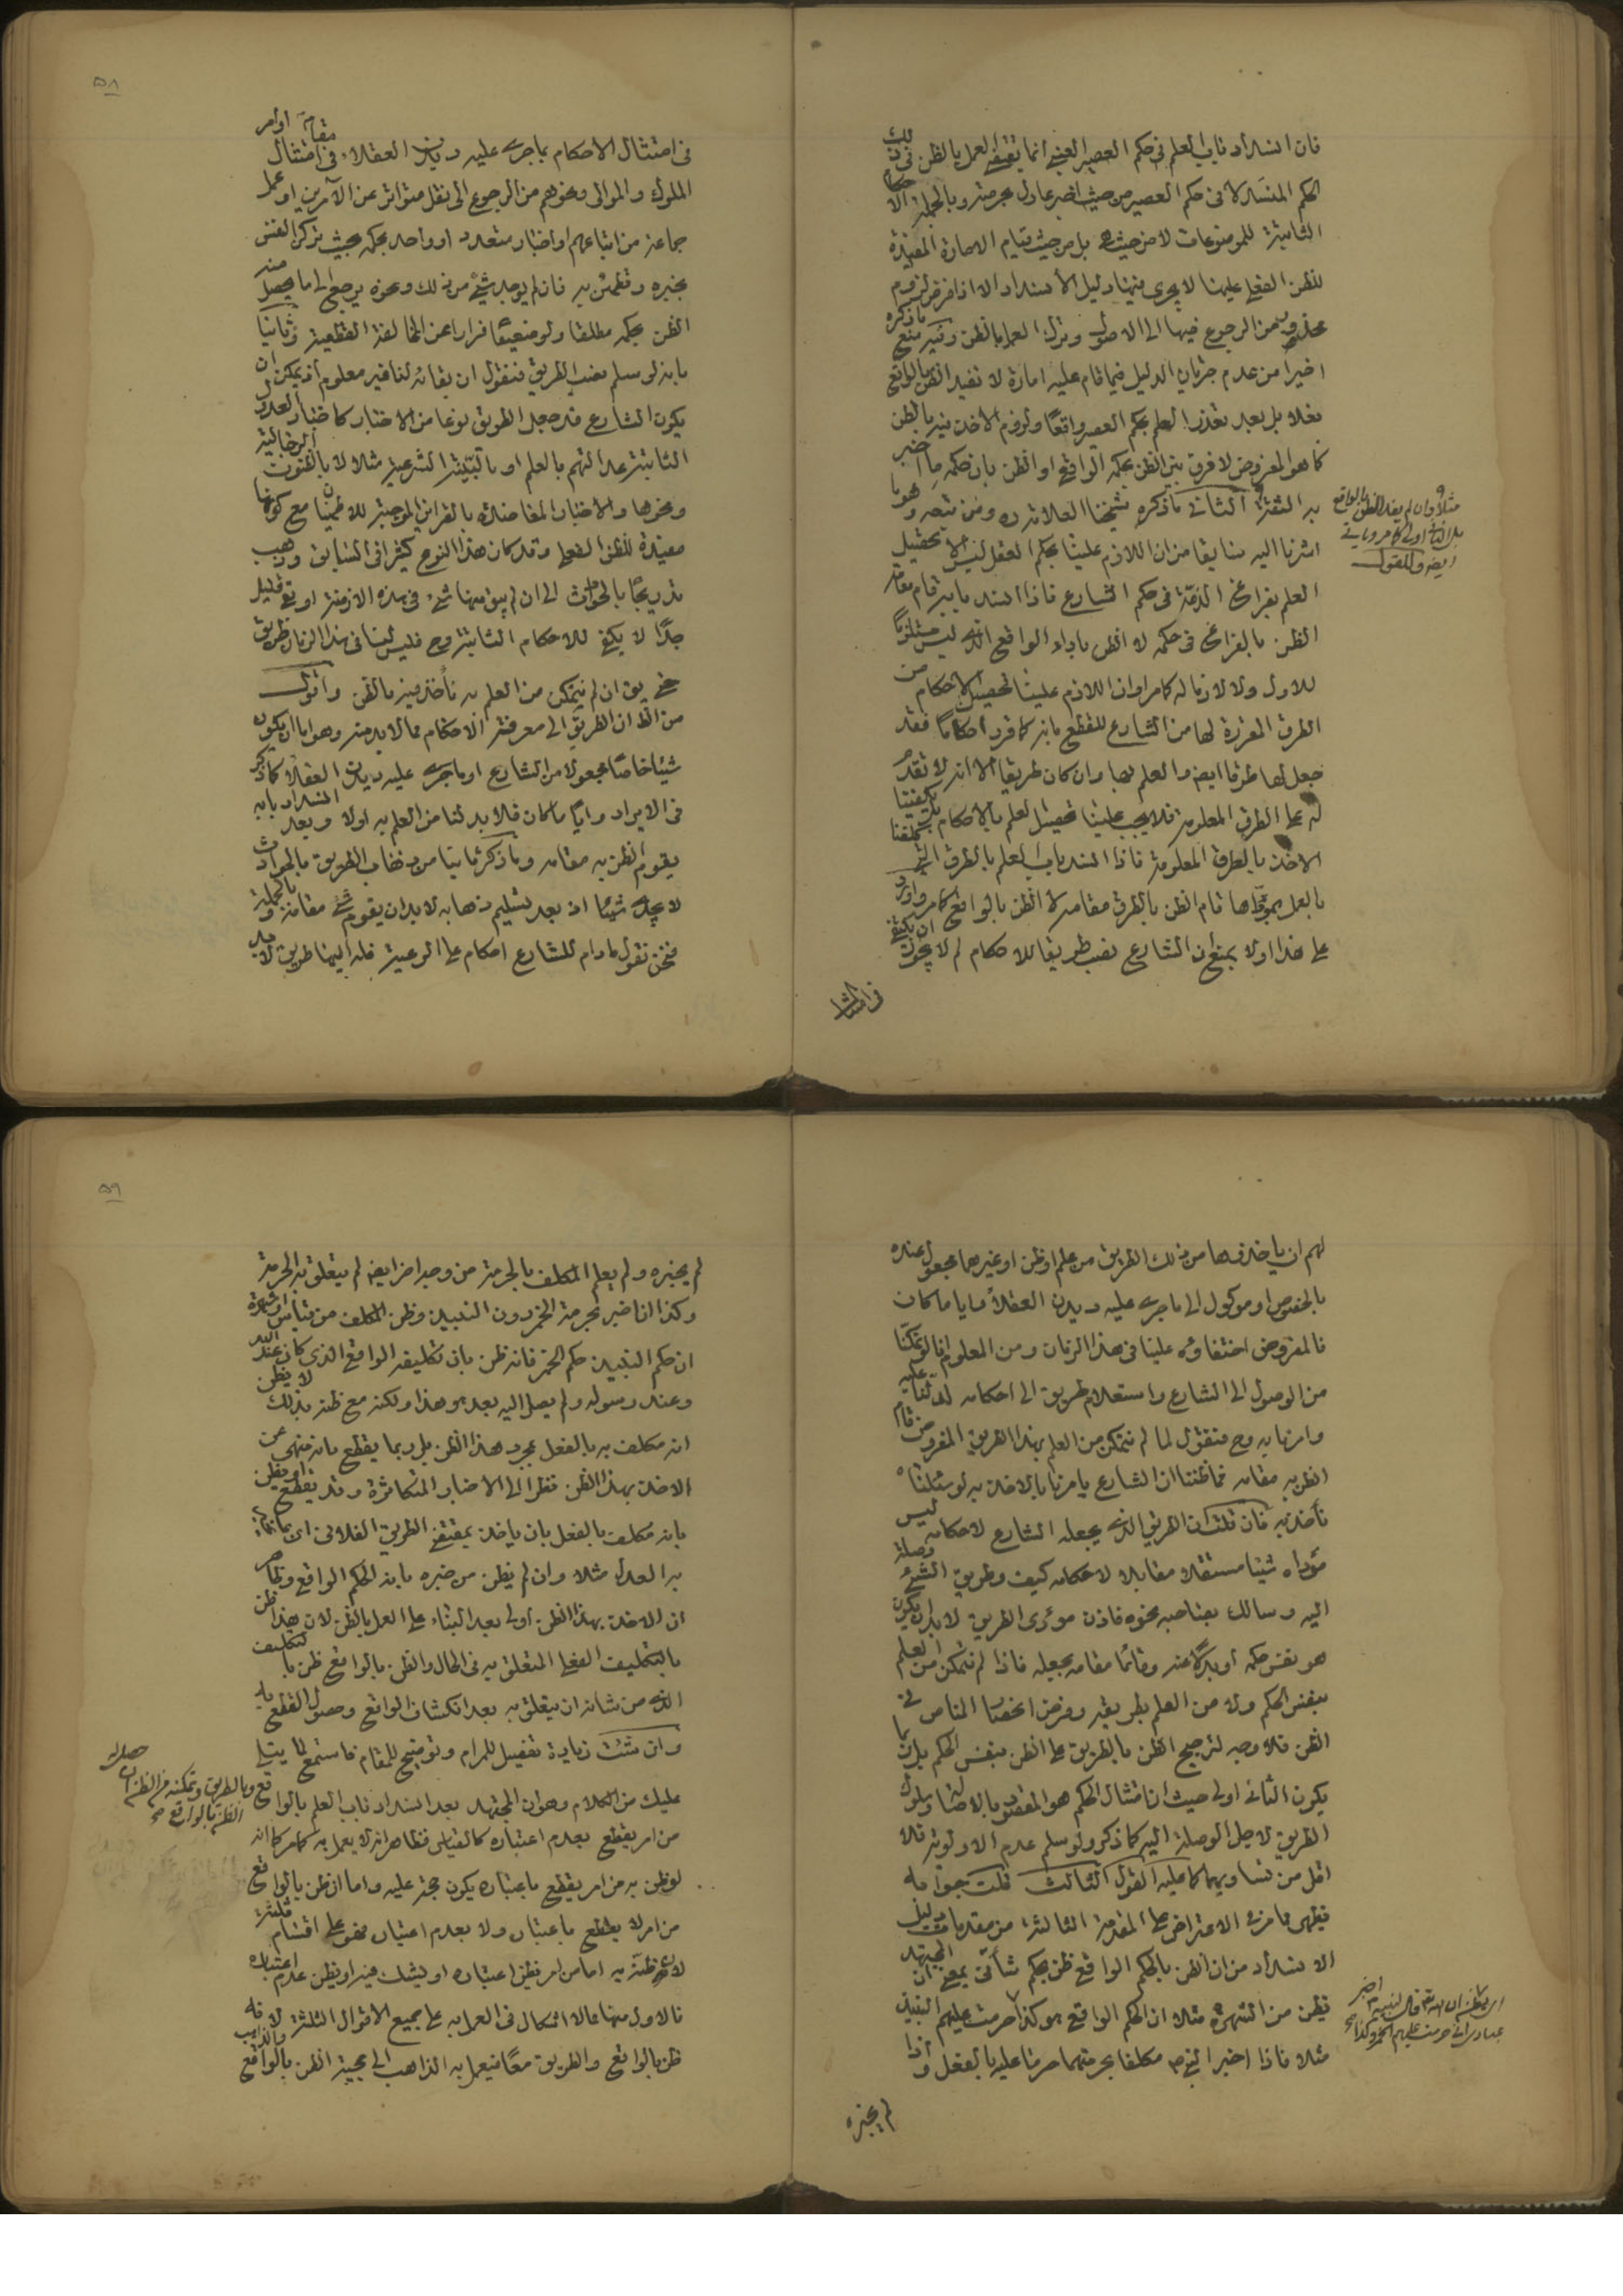 فان انسداد باب العلم في حكم العصير العنبي انما يقتضي العمل بالظن في ذلك
الحكم المنسد لا في حكم العصير من حيث اخبر عادل بحرمته وبالجملة الاحكام
الثابتة للموضوعات لا من حيث هي بل من حيث قيام الامارة المفيدة
للظن الفعلي عليها لا يجري فيها دليل الانسداد الا اذا فرض لزوم
محذور من الرجوع فيها الى الاصول وترك العمل بالظن وفيه منع ما ذكره
اخيرا من عدم جريان الدليل فيما قام عليه امارة لا تفيد الظن بالواقع
فعلا بل بعد تعذر العلم بحكم العصير واقعا ولزوم الاخذ فيه بالظن
كما هو المفروض لا فرق بين الظن بحكمه الواقعي او الظن بان حكمه ما اخبر
به الثقة الثاني ما ذكره شيخنا العلامة ره ومن تبعه وهو ما
اشرنا اليه سابقا من ان اللازم علينا بحكم العقل ليس الا تحصيل
العلم بفراغ الذمة في حكم الشارع فاذا انسد بابه قام مقامه
الظن بالفراغ في حكمه لا الظن باداء الواقع الذي ليس مستلزما
للاول ولا لازما له كما مر او ان اللازم علينا تحصيل الاحكام من
الطرق المقررة لها من الشارع للقطع بانه كما قرر احكاما فقد
جعل لها طرقا ايضا والعلم بها وان كان طريقا الا انه لا تقدم
له على الطرق المعلومة فلا يجب علينا تحصيل العلم بالاحكام بل يكفينا
الاخذ بالطرق المعلومة فاذا انسد باب العلم بالطرق التي كلفنا
بالعمل بمؤداها قام الظن بالطرق مقامه لا الظن بالواقع كما مر واورد
على هذا اولا بمنع ان الشارع نصب طريقا للاحكام لم لا يجوز ان يكتفي
في امتثال
مثلا وان لم يفد الظن بالواقع
بل الثاني اولى كما مر وياتي
ايضا والمقول
۵۸
في امتثال الاحكام بما جرى عليه ديدن العقلاء في مقام امتثال اوامر
الملوك والموالي ونحوهم من الرجوع الى نقل متواتر عن الآمرين او عمل
جماعة من اتباعهم او اخبار متعدد او واحد بحكمه بحيث تركن النفس
بخبره وتطمئن به فان لم يوجد شيء من ذلك ونحوه يرجع الى ما يحصل منه
الظن بحكمه مطلقا ولو ضعيفا فرارا عن المخالفة القطعية وثانيا
بانه لو سلم نصب الطريق فنقول ان بقائه لنا غير معلوم اذ يمكن ان
يكون الشارع قد جعل الطريق نوعا من الاخبار كاخبار العدول
الثابتة عدالتهم بالعلم او بالبينة الشرعية مثلا لا بالظنون الرجالية
ونحوها والاخبار المعاضدة بالقرائن الموجبة للاطمينان مع كونها
مفيدة للظن الفعلي وقد كان هذا النوع كثيرا في السابق وذهب
تدريجا بالحوادث الى ان لم يبق منها شيء في هذه الازمنة او بقي قليل
جدا لا يكفي للاحكام الثابتة وح فليس لنا في هذا الزمان طريق
حتى يق ان لم نتمكن من العلم به نأخذ فيه بالظن واقول
من الظ ان الطريق الى معرفة الاحكام مما لا بد منه وهو اما ان يكون
شيئا خاصا مجعولا من الشارع او ما جرى عليه ديدن العقلاء كما ذكر
في الايراد وايا ما كان فلا بد لنا من العلم به اولا وبعد انسداد بابه
يقوم الظن به مقامه وما ذكر ثانيا من ذهاب الطريق بالحوادث
لا يجدي شيئا اذ بعد تسليم ذهابه لا بد ان يقوم شيء مقامه وبالجملة
فنحن نقول ما دام للشارع احكام على الرعية فله اليها طريق لا بد
لهم ان ياخذوها من ذلك الطريق من علم او ظن او غيرهما مجعول عنده
بالخصوص او موكول الى ما جرى عليه ديدن العقلاء وايا ما كان
فالمفروض اختفاؤه علينا في هذا الزمان ومن المعلوم انا لو تمكنا
من الوصول الى الشارع واستعلام طريق الى احكامه لدلنا عليه
وامرنا به وح فنقول لما لم نتمكن من العلم بهذا الطريق المفروض قام
الظن به مقامه فما ظننا ان الشارع يامرنا بالاخذ به لو سئلناه
نأخذ به فان قلت ان الطريق الذي يجعله الشارع لاحكامه ليس
مؤداه شيئا مستقلا مقابلا لاحكامه كيف وطريق الشيء وصلة
اليه وسالك بصاحبه نحوه فاذن مؤدى الطريق لا بد ان يكون
هو نفس حكمه او بدلا عنه وقائما مقامه بجعله فاذا لم نتمكن من العلم
بنفس الحكم ولا من العلم بطريقه وفرض انحصار المناص في
الظن فلا وجه لترجيح الظن بالطريق على الظن بنفس الحكم بل ربما
يكون الثاني اولى حيث ان امتثال الحكم هو المقصود بالاصالة وسلوك
الطريق لاجل الوصلة اليه كما ذكر ولو سلم عدم الاولوية فلا
اقل من تساويهما كما عليه القول الثالث قلت جوابه
يظهر مما مر في الاعتراض على المقدمة الثالثة من مقدمات دليل
الانسداد من ان الظن بالحكم الواقعي ظن بحكم شأني بمعنى ان المجتهد
يظن من الشهرة مثلا ان الحكم الواقعي هو كذا حرمت عليهم النبيذ
مثلا فاذا اخبر النبي ص مكلفا بحرمتهما حرما عليه بالفعل واذا
لم يخبره
اي يظن ان الله تع قال لنبيه اخبر
عبادي اني حرمت عليهم الخمر وكذا صح
۵۹
لم يخبره ولم يعلم المكلف بالحرمة من وجه اخر ايضا لم يتعلق به الحرمة
وكذا اذا اخبر بحرمة الخمر دون النبيذ وظن المكلف من قياس او شهرة
ان حكم النبيذ حكم الخمر فانه ظن بان تكليفه الواقعي الذي كان عند الله
وعند رسوله ولم يصل اليه بعد هو هذا ولكنه مع ظنه بذلك لا يظن
انه مكلف به بالفعل بمجرد هذا الظن بل ربما يقطع بانه منهي عن
الاخذ بهذا الظن نظرا الى الاخبار المتكاثرة وقد يقطع او يظن
بانه مكلف بالفعل بان ياخذ بمقتضى الطريق الفلاني اي بما اخبر
به العدل مثلا وان لم يظن من خبره بانه الحكم الواقعي وظاهر
ان الاخذ بهذا الظن اولى بعد البناء على العمل بالظن لان هذا ظن
بالتكليف الفعلي المتعلق به في الحال والظن بالواقع ظن بالتكليف
الذي من شأنه ان يتعلق به بعد انكشاف الواقع وحصول القطع به
وان شئت زيادة تفصيل للمرام وتوضيح للمقام فاستمع لما يتلى
عليك من الكلام وهو ان المجتهد بعد انسداد باب العلم بالواقع
من امر يقطع بعدم اعتباره كالقياس فظاهر انه لا يعمل به كما مر كما انه
لو ظن به من امر يقطع باعتباره يكون حجة عليه واما ان ظن بالواقع
من امر لا يقطع باعتباره ولا بعدم اعتباره فهو على اقسام ثلثة
لان ظنه به اما من امر يظن اعتباره او يشك فيه او يظن عدم اعتباره
فالاول منها مما لا اشكال في العمل به على جميع الاقوال الثلثة لانه
ظن بالواقع والطريق معا فيعمل به الذاهب الى حجية الظن بالواقع والذاهب
وبالطريق وتمكنه من الظن ان حصل له
الظن بالواقع صح